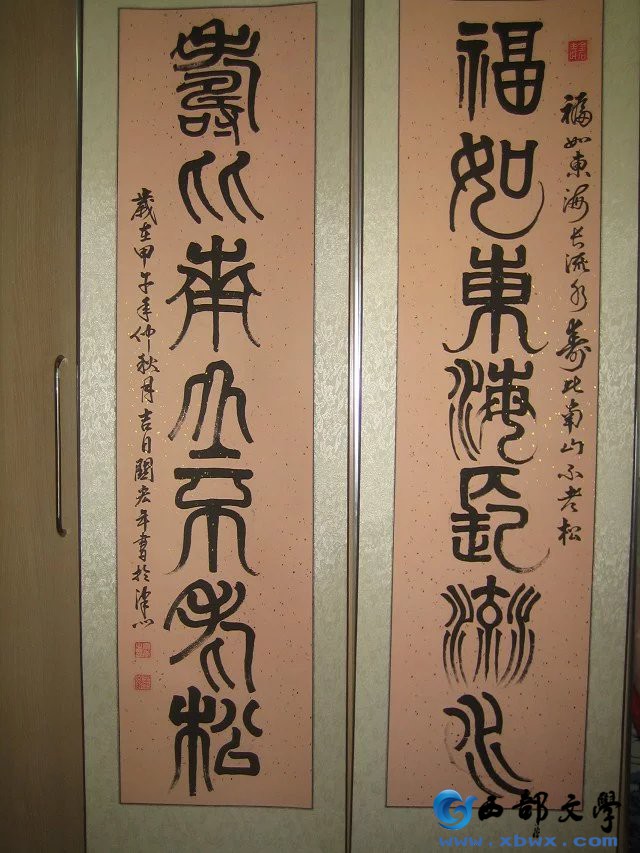 福如東海長流水壽比南山不老松
福如東海長流水
壽比南山不老松
歲在甲午年仲秋月吉日關宏年書於
西部文學
www.xbwx.com